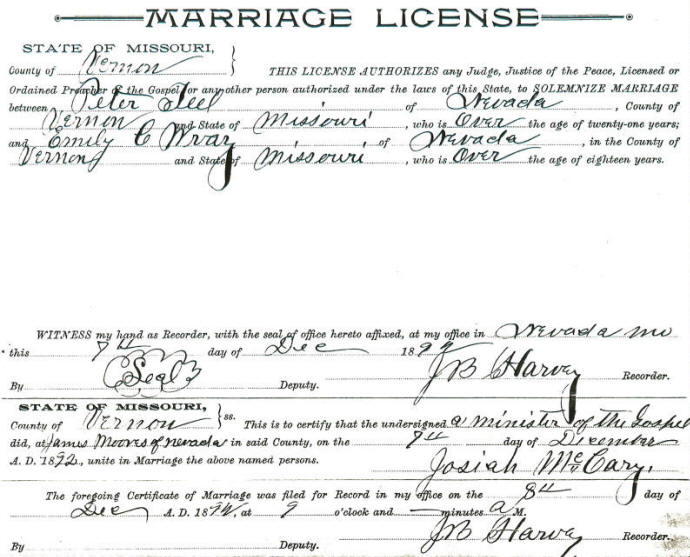 MARRIAGE LICENSE
STATE OF MISSOURI,
County of Vernon } THIS LICENSE AUTHORIZES any Judge, Justice of the Peace, Licensed or
Ordained Preacher of the Gospel or any other person authorized under the laws of this State, to SOLEMNIZE MARRIAGE
between Peter Teel of Nevada, County of
Vernon and State of Missouri, who is Over the age of twenty-one years;
and Emily C Wray of Nevada, in the County of
Vernon and State of Missouri, who is Over the age of eighteen years.
WITNESS my hand as Recorder, with the seal of office hereto affixed, at my office in Nevada Mo
this 7th day of Dec 1892
By Seal Deputy. J B Harvey Recorder.
STATE OF MISSOURI,
County of Vernon } ss. This is to certify that the undersigned a minister of the Gospel
did, at James Moores of Nevada in said County, on the 7th day of December
A. D. 1892, unite in Marriage the above named persons. Josiah McCary.
The foregoing Certificate of Marriage was filed for Record in my office on the 8th day of
Dec A. D. 1892, at 9 o'clock and — minutes a M.
By Deputy. J B Harvey Recorder.